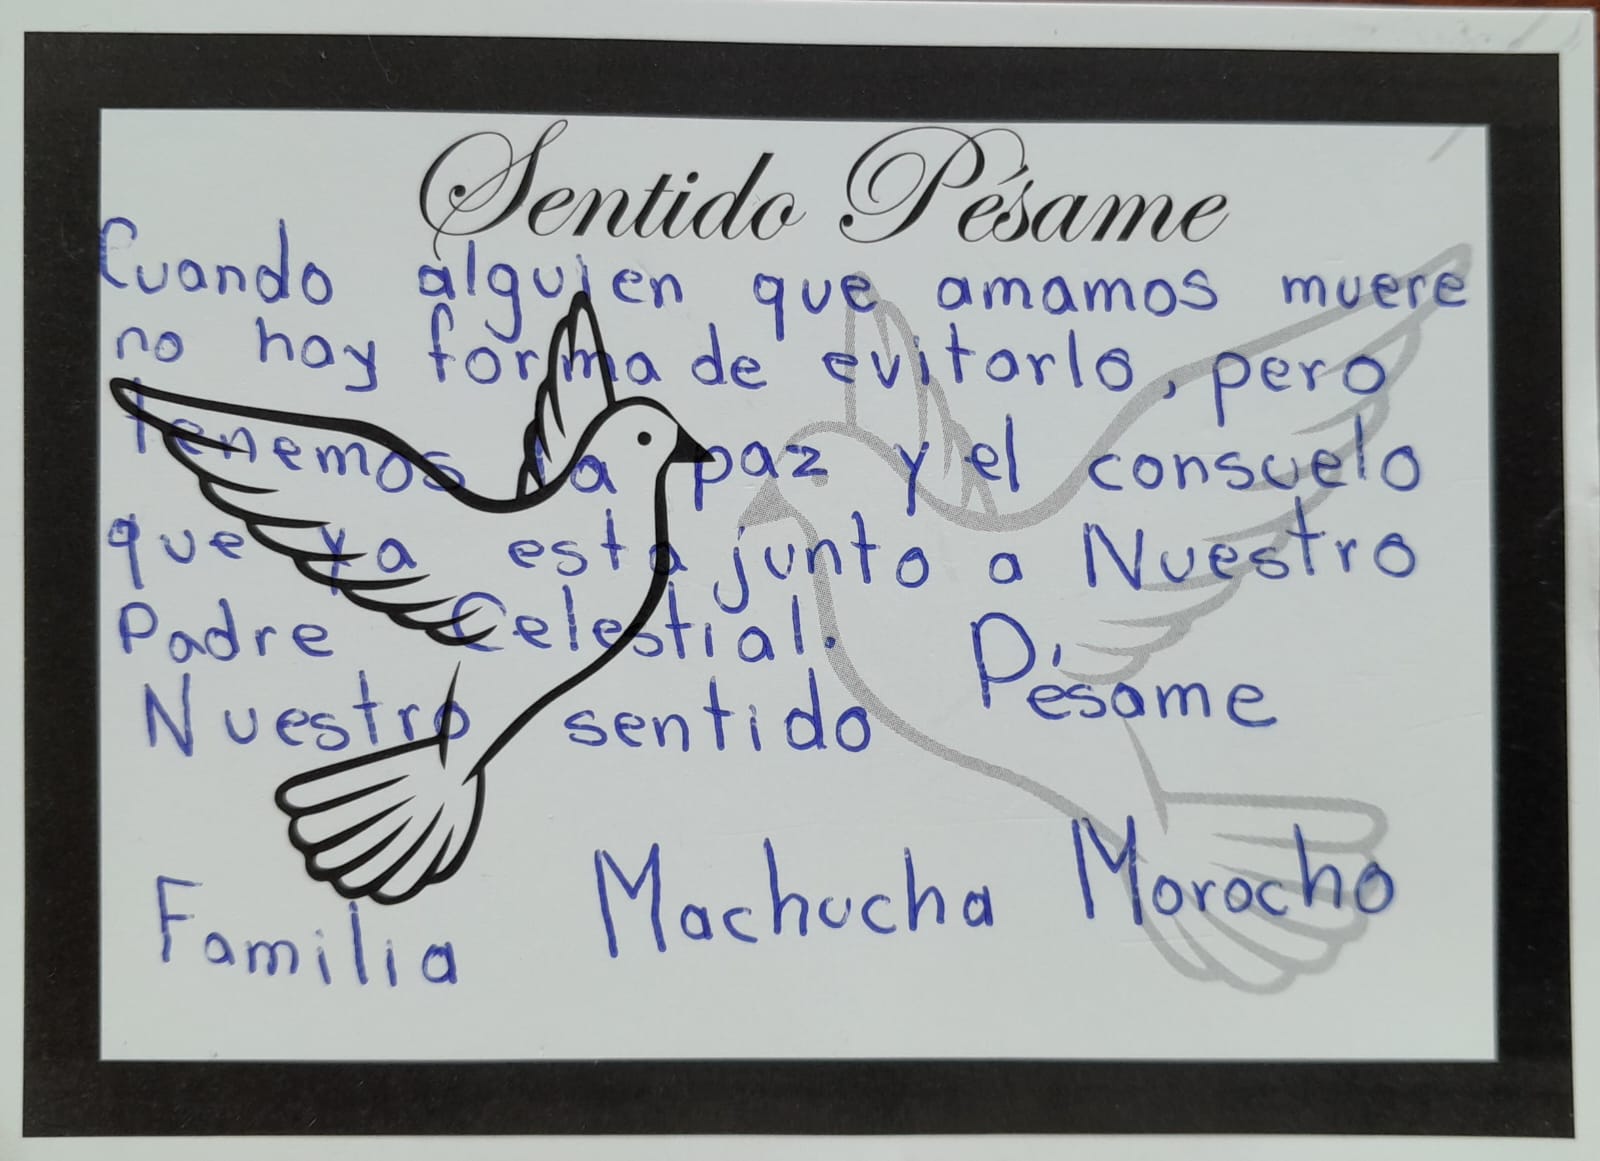 Sentido Pésame
Cuando alguien que amamos muere
no hay forma de evitarlo, pero
tenemos la paz y el consuelo
que ya esta junto a Nuestro
Padre Celestial.
Nuestro sentido Pésame
Familia Machucha Morocho